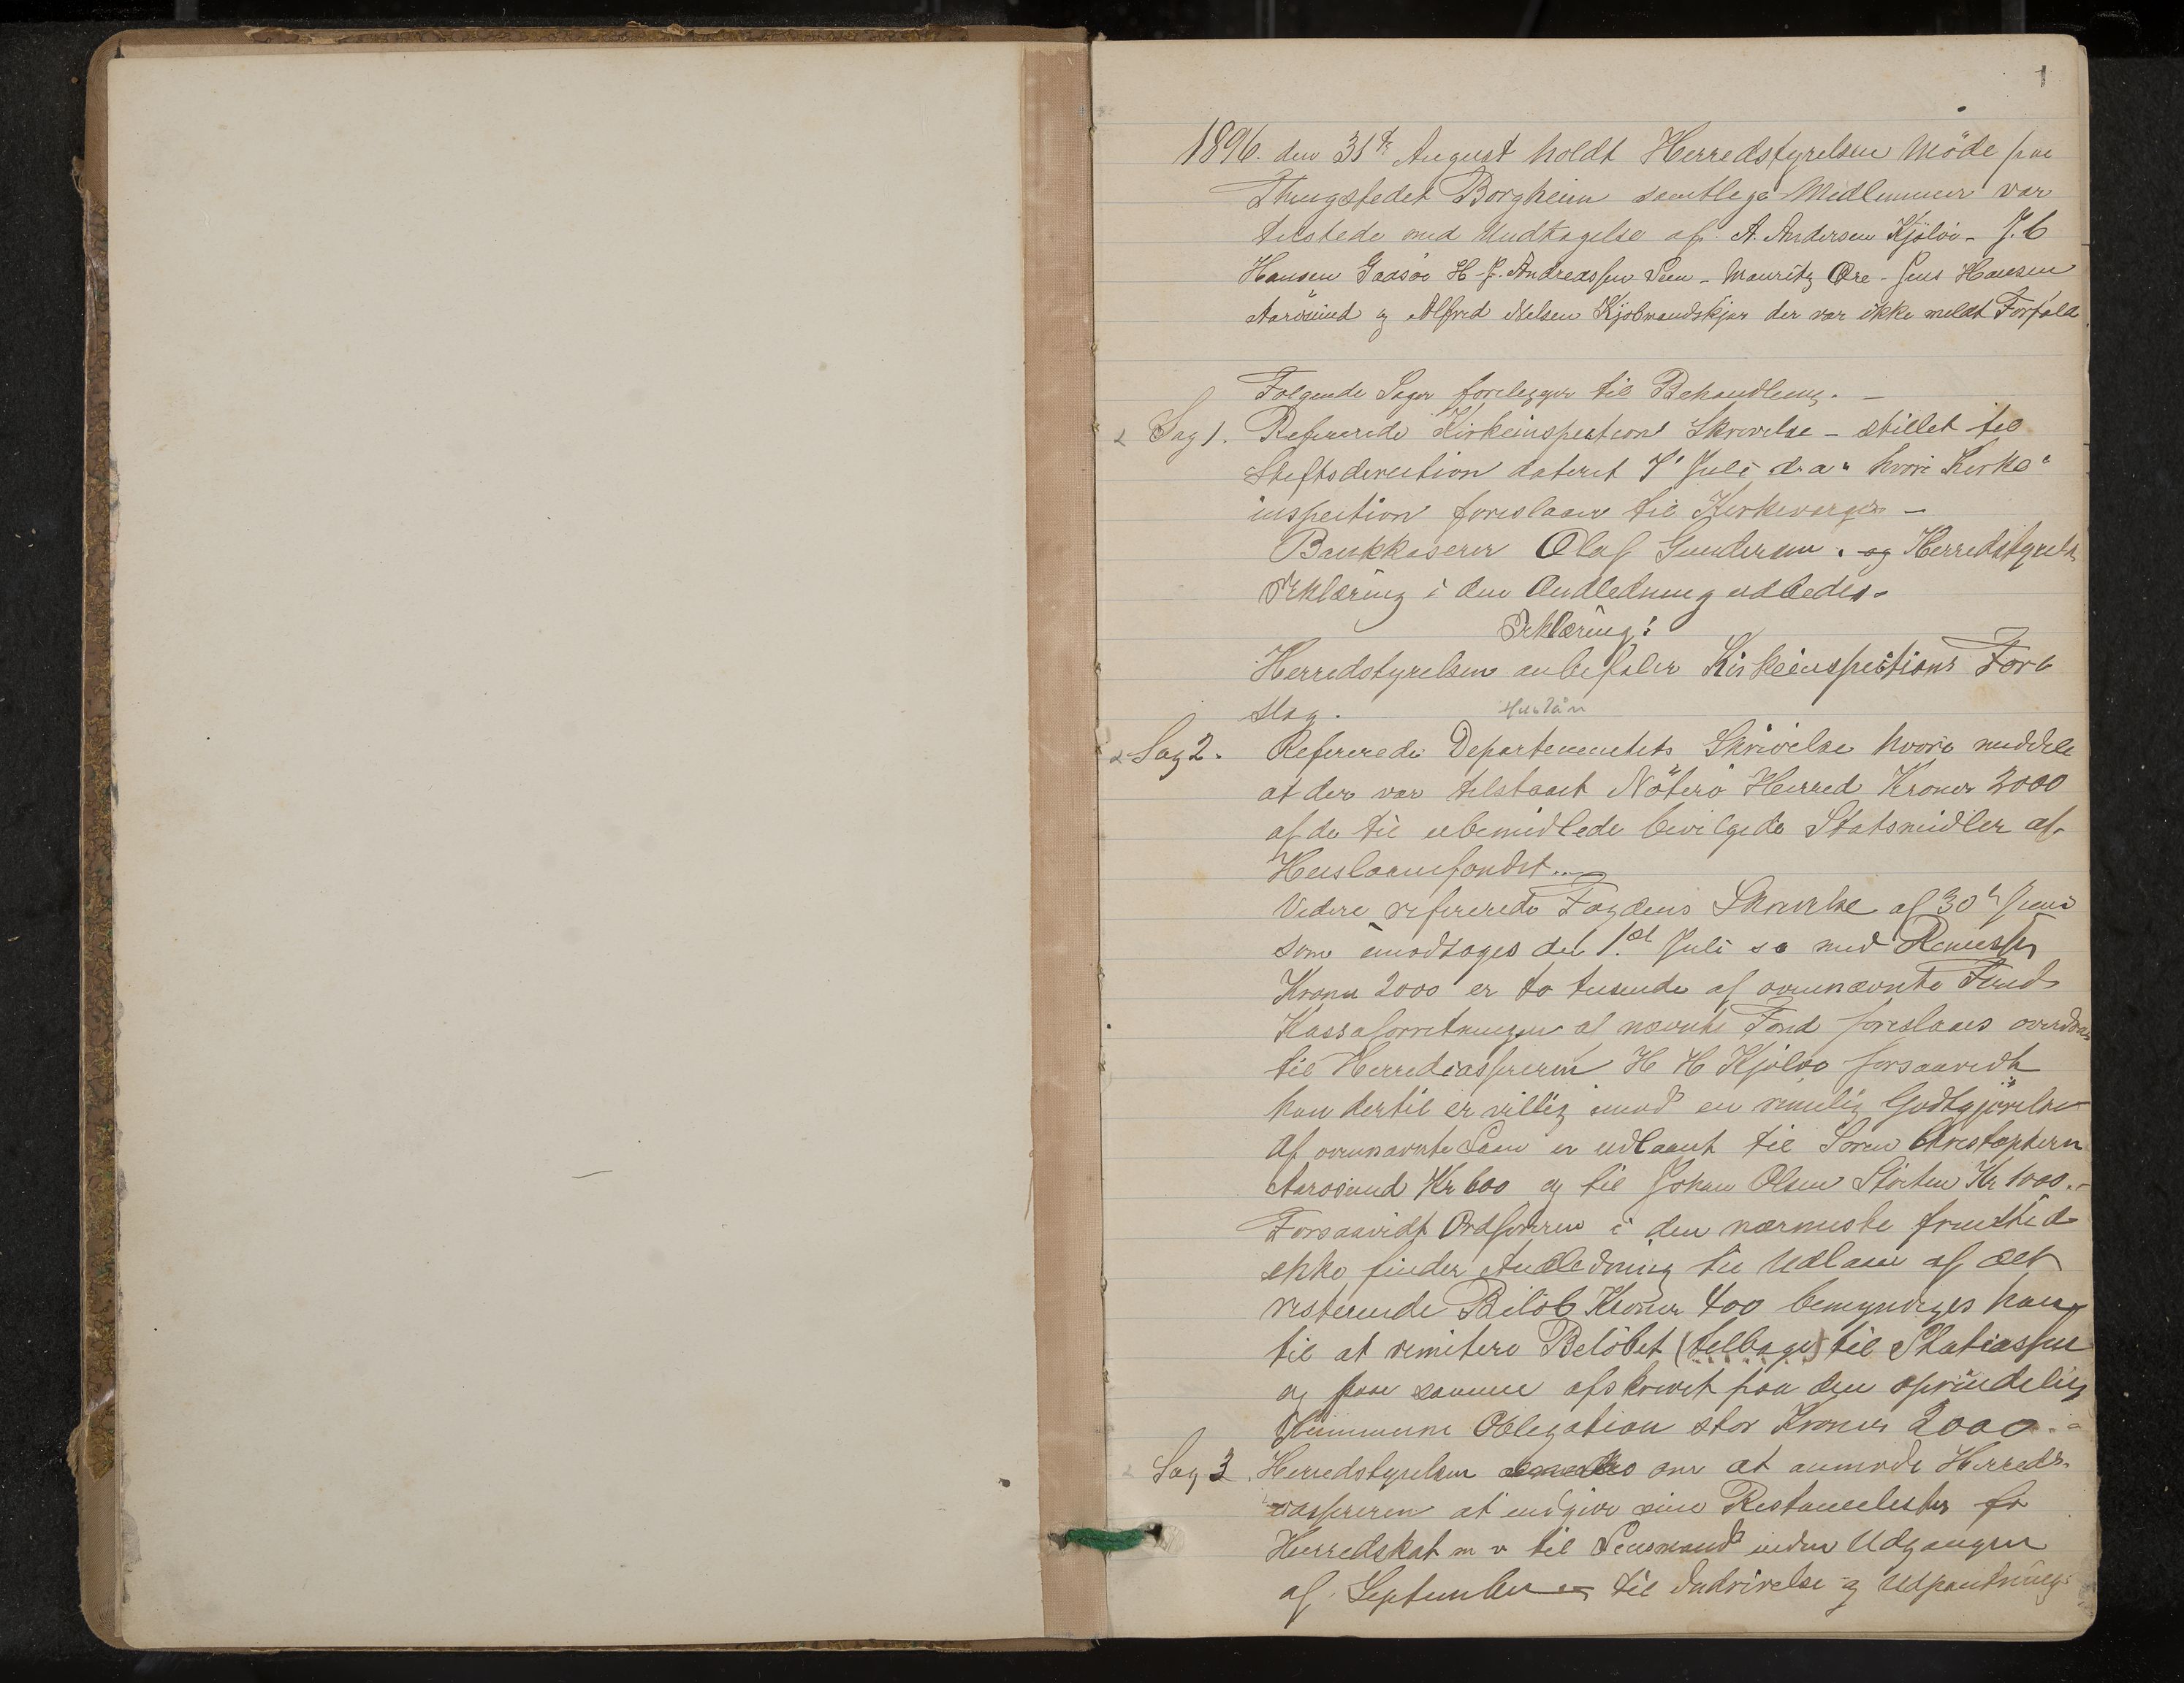 1
1896. den 31te August holdt Herredstyrelsen Möde paa
Thingstedet Borgheim samtlege Medlemmer var
tilstede med Undtagelse af A. Andersen Kjølöe - J. C
Hansen Gaasöe H. J. Andreassen Leen - Mauritz Øre - Jens Hansen
Aarösund og Alfred Nelsen Kjøbmandskjær der var ikke meldt Forfald
Følgende Sager forelegger til Behandling. -
Sag 1. Refererede Kirkeinspections Skrivelse - stillet til
Stiftsdirection dateret 7' Juli d. a. hvori Kirke-
inspection foreslaar til Kirkeverger -
Bankkaserer Olaf Gundersen. og Herredstyrels
Erklæring i den Andledning udbedes.
Erklæring:
Herredstyrelsen anbefaler Kirkeinspections For-
slag.
Huslån
Sag 2. Refererede Departementets Skrivelse hvori meddele
at der var tilstaaet Nöterö Herred Kroner 2000
af de til ubemidlede bevilgede Statsmidler af
Huslaanefondet.
Videre refererede Fogdens Skrivelse af 30te Juni
som modtoges den 1st Juli s a med Remesse
Kroner 2000 er to tusende af ovennævnte Fond
Kassaforretningen af nævnte Fond foreslaaes overdrag
til Herredcasseren H H Kjøløe forsaavidt
han dertil er villig imod en rimelig Godtgjörelse
Af ovennævnte Laan er udlaant til Sören Christophersen
Aarosund Kr 600 og til Johan Olsen Störten Kr 1000.-
Forsaavidt Ordføreren i den nærmeste fremtid
ikke finder Andledning til Udlaan af det
resterende Belöb Kroner 400 bemyndiges han
til at remitere Belöbet (telbage) til Statcassen
og faae samme afskrevet paa den oprindelig
Kommune Obligation stor Kroner 2000.-
Sag 3. Herredstyrelsen om at anmode Herreds-
casseren at indgive sine Restancelister for
Herredskat m v til Lensmand inden Udgangen
af September til Inddrivelse og Udpantning